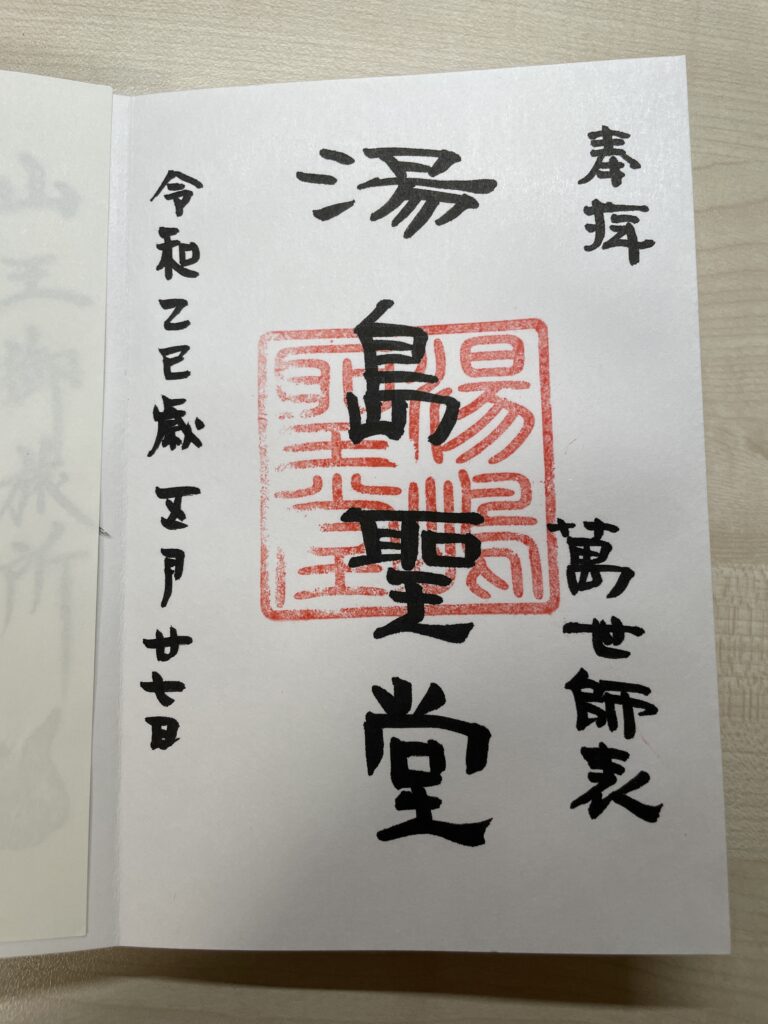 奉拝
萬世師表
湯島聖堂
湯嶋
聖堂
令和乙巳歳五月廿七日
山王御旅所